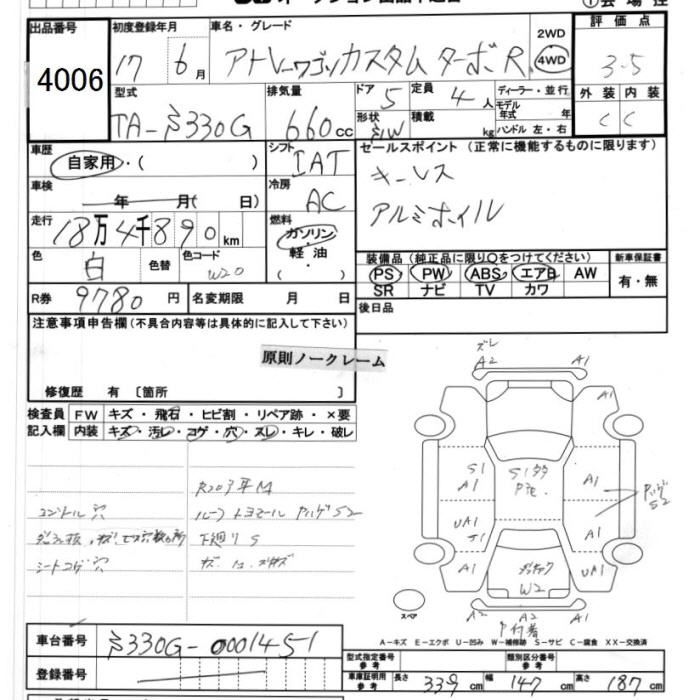 出品番号 4006
初度登録年月 17 6月
車名・グレード アトレーワゴンカスタム ターボR
2WD 4WD
評価点 3.5
外装 内装 C C
型式 TA-S330G
排気量 660cc
ドア 5
定員 4人
形状 S/W
積載 kg
ディーラー・並行
モデル年式 年
ハンドル 左・右
車歴 自家用・( )
シフト IAT
車検 年 月( 日)
冷房 AC
セールスポイント (正常に機能するものに限ります)
キーレス
アルミホイル
走行 18万4千890km
燃料 ガソリン・軽油 ( )
色 白 色替 色コード W20
R券 9780円 名変期限 月 日
装備品 (純正品に限り○をつけてください)
PS PW ABS エアB AW
SR ナビ TV カワ
新車保証書 有・無
後日品
注意事項申告欄(不具合内容等は具体的に記入して下さい)
原則ノークレーム
修復歴 有 〔箇所 〕
検査員記入欄
FW キズ・飛石・ヒビ割・リペア跡・×要
内装 キズ・汚レ・コゲ・穴・スレ・キレ・破レ
コントル穴
シートコゲ穴
下廻りS
A2 A1
A1
S1 A1 A1
UA1 A1
A1 W2 UA1
A2 A2 A1
スペア
A-キズ E-エクボ U-凹み W-補修跡 S-サビ C-腐食 XX-交換済
車台番号 S330G-0001451
登録番号
型式指定番号 参考
類別区分番号 参考
車庫証明用 参考 長さ 339cm 幅 147cm 高さ 187cm